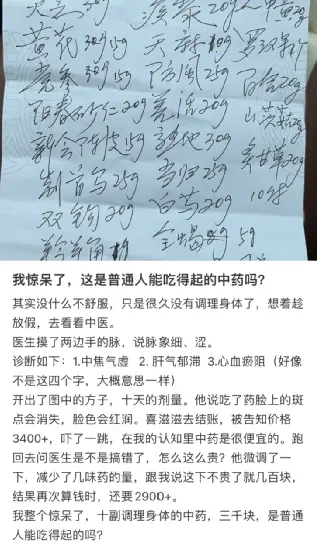 党参 防风25g 百合20g
阳春砂仁20g 羌活20g
新会陈皮 30g 炙甘草20g
制首乌25g 当归25g
双钩20g 20g
羚羊角 全蝎 5g
我惊呆了，这是普通人能吃得起的中药吗?
其实没什么不舒服，只是很久没有调理身体了，想着趁
放假，去看看中医。
医生摸了两边手的脉，说脉象细、涩。
诊断如下：1.中焦气虚 2. 肝气郁滞 3.心血瘀阻（好像
不是这四个字，大概意思一样）
开出了图中的方子，十天的剂量。他说吃了药脸上的斑
点会消失，脸色会红润。喜滋滋去结账，被告知价格
3400+，吓了一跳，在我的认知里中药是很便宜的。跑
回去问医生是不是搞错了，怎么这么贵？他微调了一
下，减少了几味药的量，跟我说这下不贵了就几百块，
结果再次算钱时，还要2900+。
我整个惊呆了，十副调理身体的中药，三千块，是普通
人能吃得起的吗？